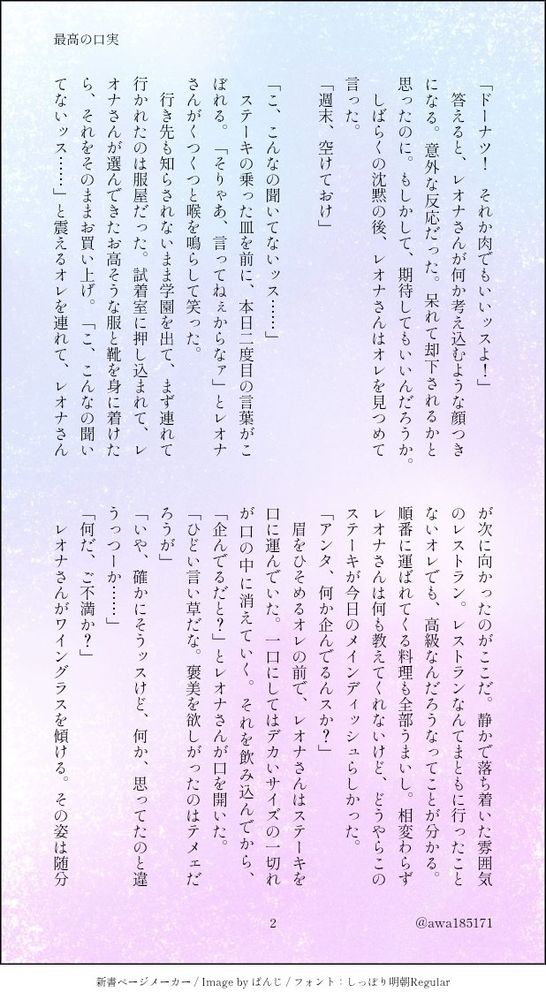 最高の口実
「ドーナツ！　それか肉でもいいッスよ！」
　答えると、レオナさんが何か考え込むような顔つき
になる。意外な反応だった。呆れて却下されるかと
思ったのに。もしかして、期待してもいいんだろうか。
　しばらくの沈黙の後、レオナさんはオレを見つめて
言った。
「週末、空けておけ」
「こ、こんなの聞いてないッス……」
　ステーキの乗った皿を前に、本日二度目の言葉がこ
ぼれる。「そりゃあ、言ってねぇからなァ」とレオナ
さんがくつくつと喉を鳴らして笑った。
　行き先も知らされないまま学園を出て、まず連れて
行かれたのは服屋だった。試着室に押し込まれて、レ
オナさんが選んできたお高そうな服と靴を身に着けた
ら、それをそのままお買い上げ。「こ、こんなの聞い
てないッス……」と震えるオレを連れて、レオナさん
が次に向かったのがここだ。静かで落ち着いた雰囲気
のレストラン。レストランなんてまともに行ったこと
ないオレでも、高級なんだろうなってことが分かる。
順番に運ばれてくる料理も全部うまいし。相変わらず
レオナさんは何も教えてくれないけど、どうやらこの
ステーキが今日のメインディッシュらしかった。
「アンタ、何か企んでるんスか？」
　眉をひそめるオレの前で、レオナさんはステーキを
口に運んでいた。一口にしてはデカいサイズの一切れ
が口の中に消えていく。それを飲み込んでから、
「企んでるだと？」とレオナさんが口を開いた。
「ひどい言い草だな。褒美を欲しがったのはテメェだ
ろうが」
「いや、確かにそうッスけど、何か、思ってたのと違
うっつーか……」
「何だ、ご不満か？」
　レオナさんがワイングラスを傾ける。その姿は随分
2
@awa185171
新書ページメーカー / Image by ぱんじ / フォント：しっぽり明朝Regular